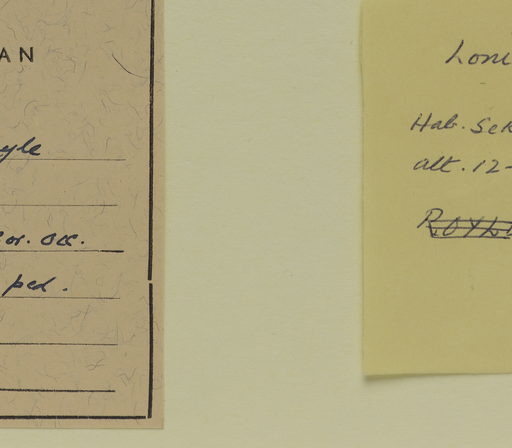 AN
yle
or. occ.
ped.
Loni
Hab. Sek
alt. 12-